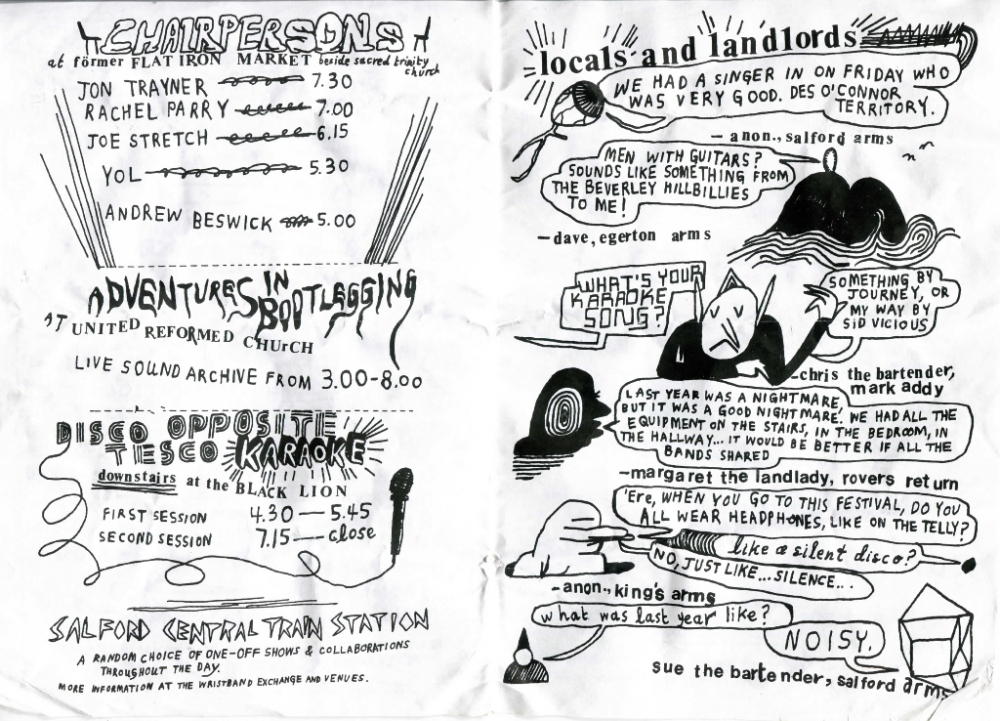 CHAIRPERSONS
at förmer FLAT IRON MARKET beside sacred trinity church
JON TRAYNER 7.30
RACHEL PARRY 7.00
JOE STRETCH 6.15
YOL 5.30
ANDREW BESWICK 5.00
ADVENTURES IN BOOTLEGGING
AT UNITED REFORMED CHUrCH
LIVE SOUND ARCHIVE FROM 3.00-8.00
DISCO OPPOSITE
TESCO KARAOKE
downstairs at the BLACK LION
FIRST SESSION 4.30 — 5.45
SECOND SESSION 7.15 — close
SALFORD CENTRAL TRAIN STATION
A RANDOM CHOICE OF ONE-OFF SHOWS & COLLABORATIONS
THROUGHOUT THE DAY.
MORE INFORMATION AT THE WRISTBAND EXCHANGE AND VENUES.
locals and landlords
WE HAD A SINGER IN ON FRIDAY WHO
WAS VERY GOOD. DES O'CONNOR
TERRITORY.
– anon., salford arms
MEN WITH GUITARS?
SOUNDS LIKE SOMETHING FROM
THE BEVERLEY HILLBILLIES
TO ME!
– dave, egerton arms
WHAT'S YOUR
KARAOKE
SONG?
SOMETHING BY
JOURNEY, OR
MY WAY BY
SID VICIOUS
–chris the bartender,
mark addy
LAST YEAR WAS A NIGHTMARE
BUT IT WAS A GOOD NIGHTMARE! WE HAD ALL THE
EQUIPMENT ON THE STAIRS, IN THE BEDROOM, IN
THE HALLWAY... IT WOULD BE BETTER IF ALL THE
BANDS SHARED
–margaret the landlady, rovers return
'ERE, WHEN YOU GO TO THIS FESTIVAL, DO YOU
ALL WEAR HEADPHONES, LIKE ON THE TELLY?
like a silent disco?
NO, JUST LIKE... SILENCE...
–anon., king's arms
what was last year like?
NOISY.
sue the bartender, salford arms